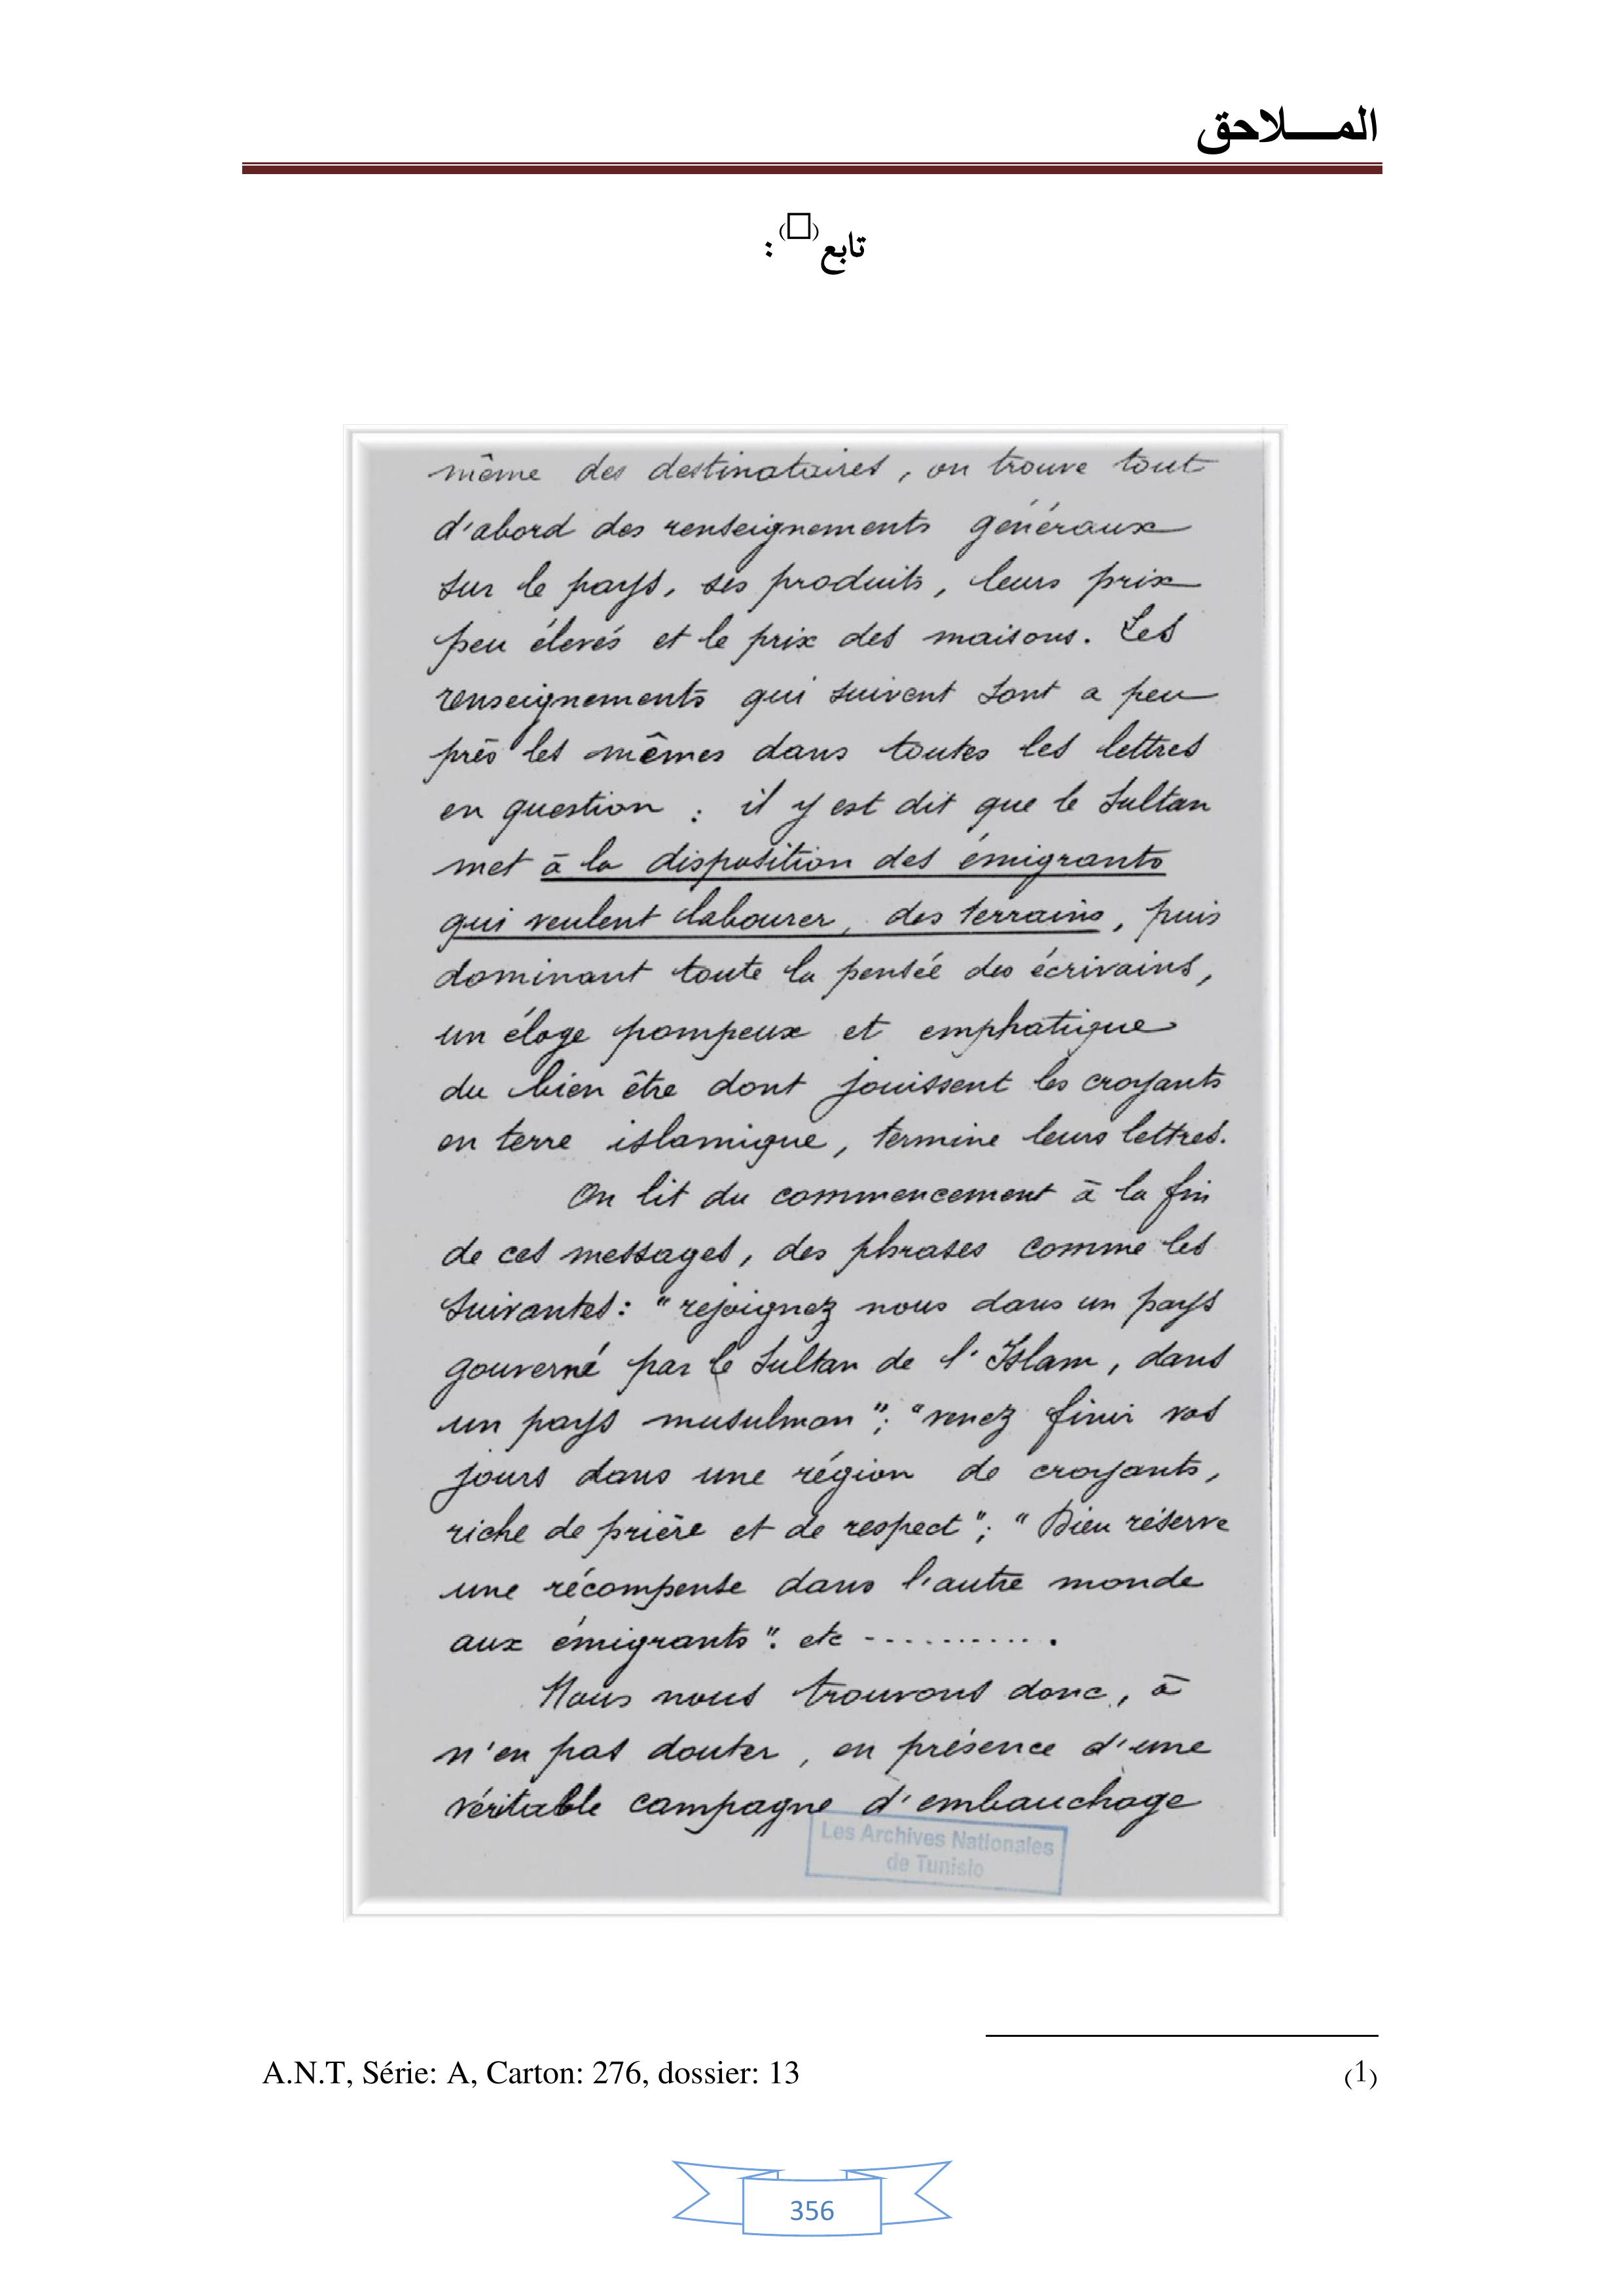 المـــــلاحق
تابع(□) :
même des destinataires, on trouve tout
d'abord des renseignements généraux
sur le pays, ses produits, leurs prix
peu élevés et le prix des maisons. Les
renseignements qui suivent sont a peu
près les mêmes dans toutes les lettres
en question : il y est dit que le Sultan
met à la disposition des émigrants
qui veulent labourer, des terrains, puis
dominant toute la pensée des écrivains,
un éloge pompeux et emphatique
du bien être dont jouissent les croyants
en terre islamique, termine leurs lettres.
On lit du commencement à la fin
de ces messages, des phrases comme les
suivantes : "rejoignez nous dans un pays
gouverné par le Sultan de l'Islam, dans
un pays musulman"; "venez finir vos
jours dans une région de croyants,
riche de prière et de respect"; "Dieu réserve
une récompense dans l'autre monde
aux émigrants". etc - - . . . . . . . . . .
Nous nous trouvons donc, à
n'en pas douter, en présence d'une
véritable campagne d'embauchage
Les Archives Nationales
de Tunisie
(1) A.N.T, Série: A, Carton: 276, dossier: 13
356